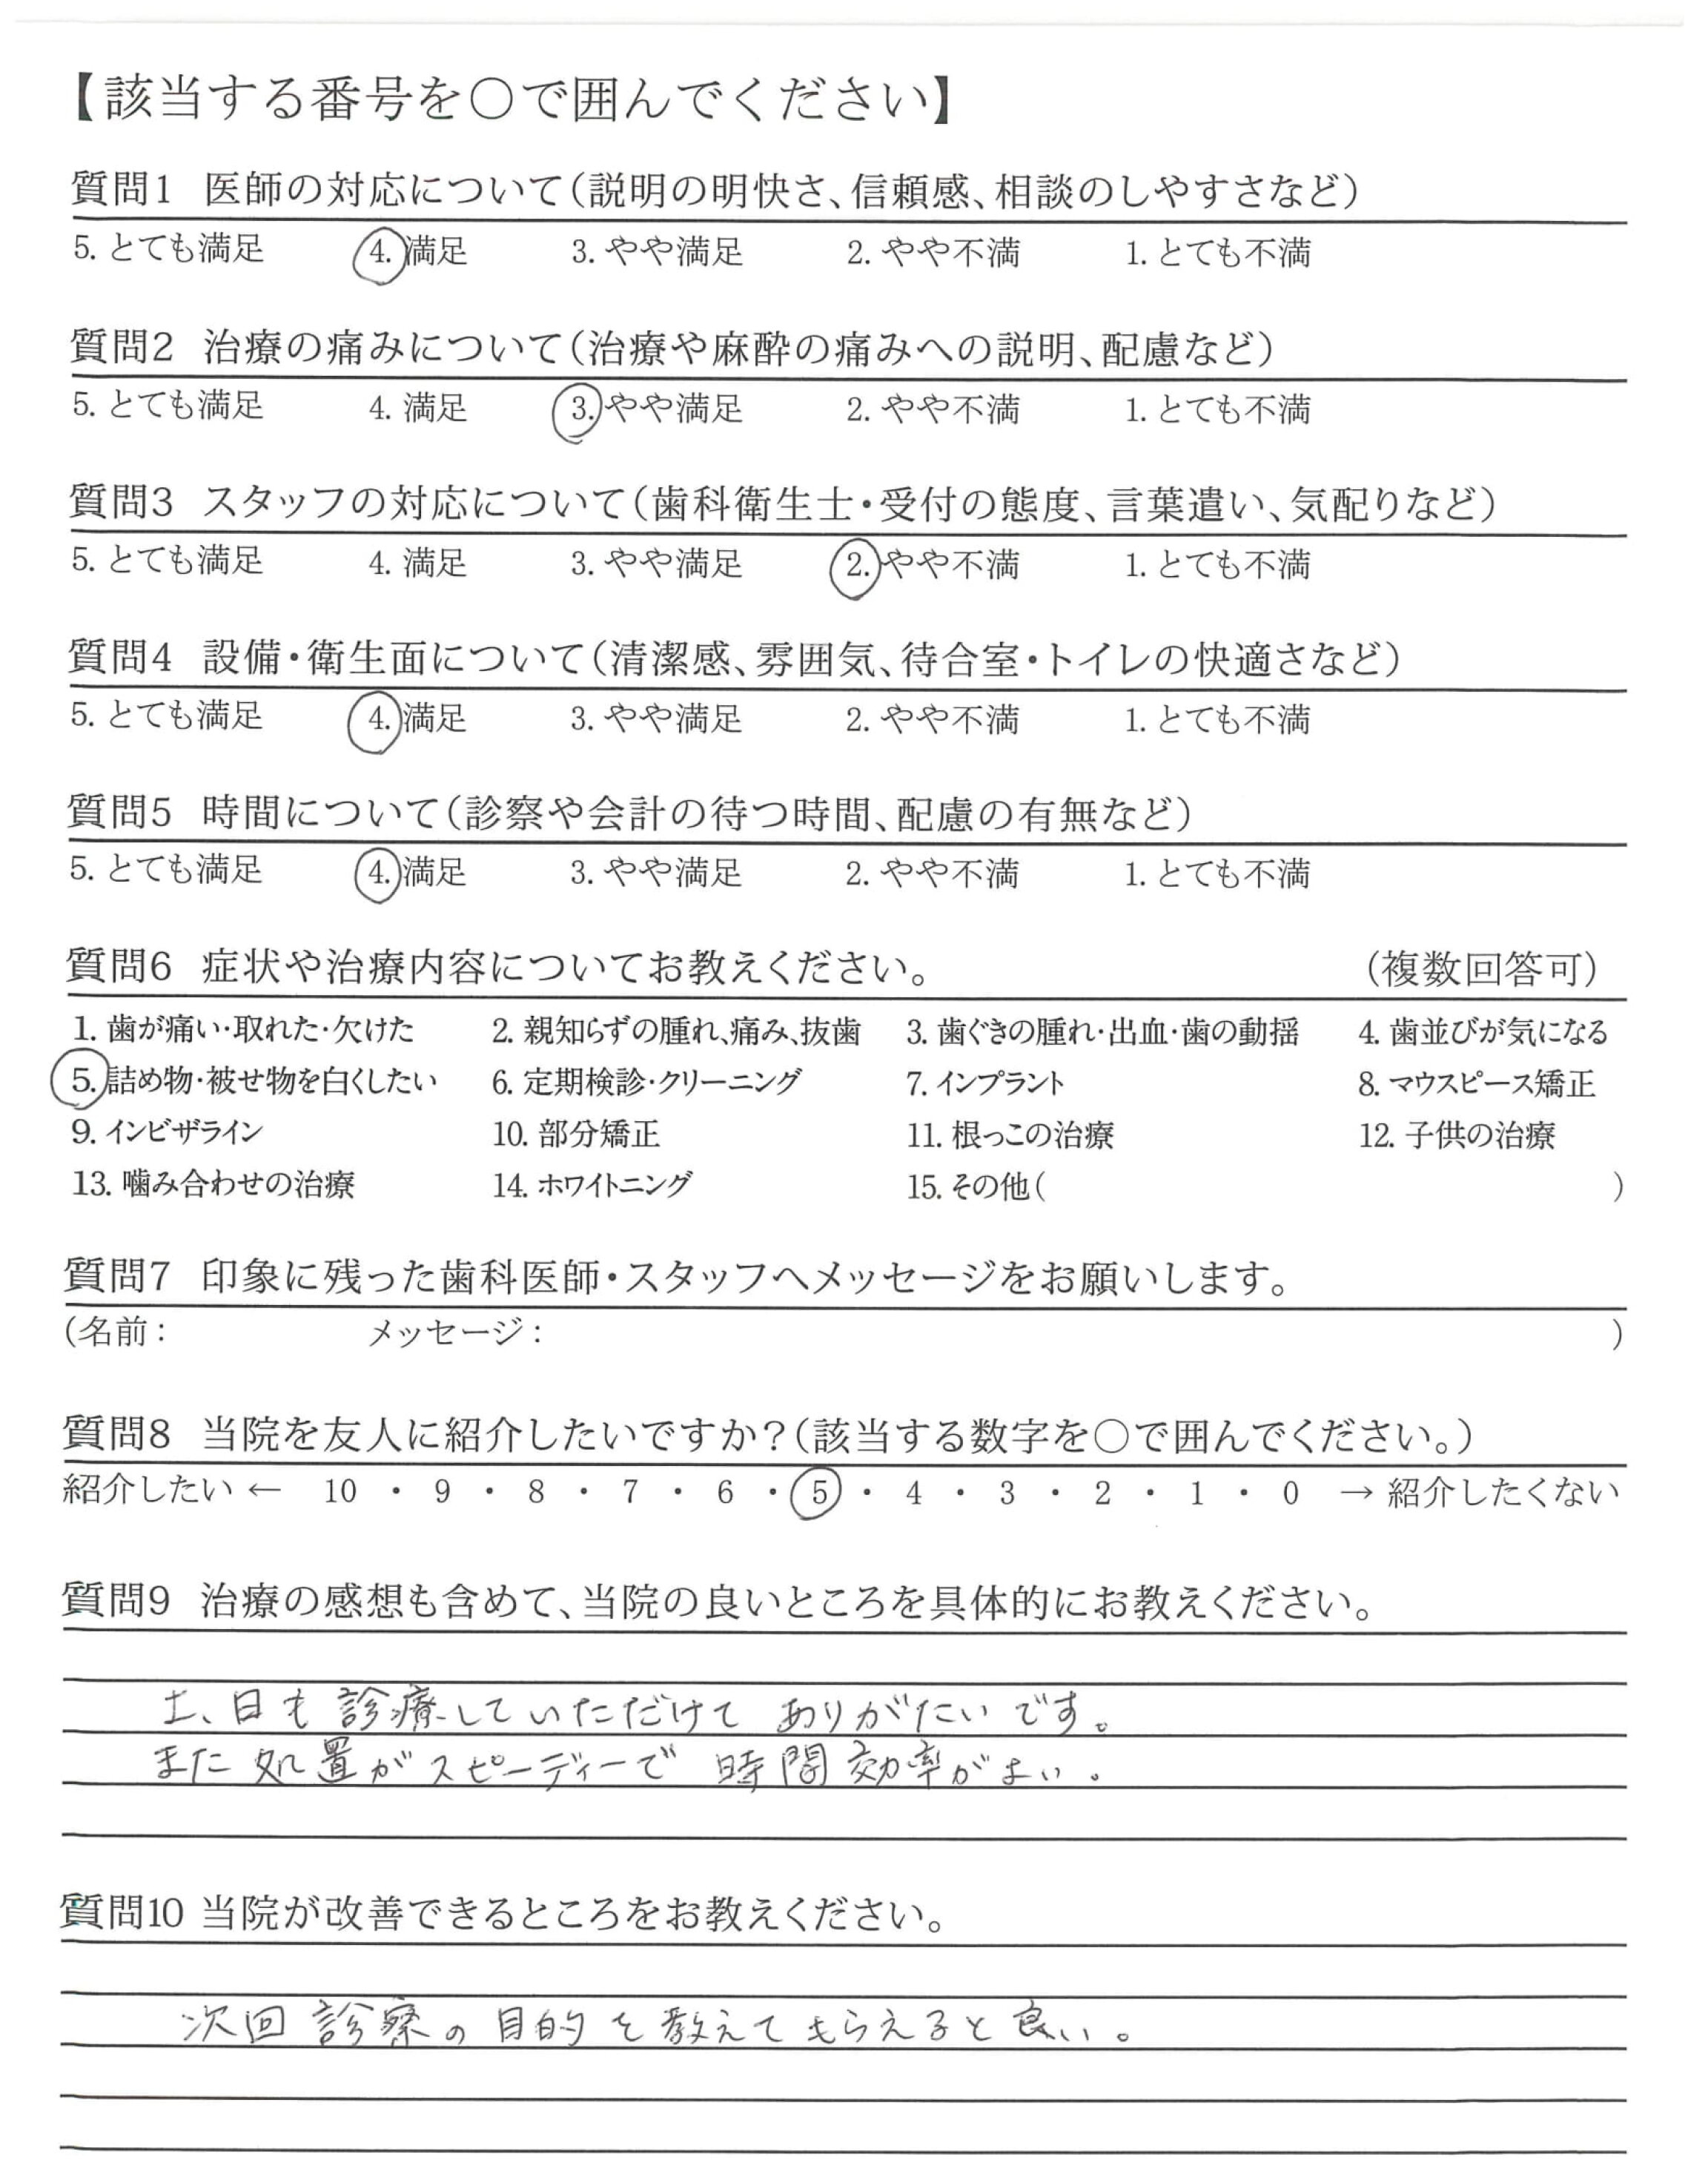 【該当する番号を〇で囲んでください】
質問1 医師の対応について(説明の明快さ、信頼感、相談のしやすさなど)
5. とても満足 4. 満足 3. やや満足 2. やや不満 1. とても不満
質問2 治療の痛みについて(治療や麻酔の痛みへの説明、配慮など)
5. とても満足 4. 満足 3. やや満足 2. やや不満 1. とても不満
質問3 スタッフの対応について(歯科衛生士・受付の態度、言葉遣い、気配りなど)
5. とても満足 4. 満足 3. やや満足 2. やや不満 1. とても不満
質問4 設備・衛生面について(清潔感、雰囲気、待合室・トイレの快適さなど)
5. とても満足 4. 満足 3. やや満足 2. やや不満 1. とても不満
質問5 時間について(診察や会計の待つ時間、配慮の有無など)
5. とても満足 4. 満足 3. やや満足 2. やや不満 1. とても不満
質問6 症状や治療内容についてお教えください。 (複数回答可)
1. 歯が痛い・取れた・欠けた 2. 親知らずの腫れ、痛み、抜歯 3. 歯ぐきの腫れ・出血・歯の動揺 4. 歯並びが気になる
5. 詰め物・被せ物を白くしたい 6. 定期検診・クリーニング 7. インプラント 8. マウスピース矯正
9. インビザライン 10. 部分矯正 11. 根っこの治療 12. 子供の治療
13. 噛み合わせの治療 14. ホワイトニング 15. その他( )
質問7 印象に残った歯科医師・スタッフへメッセージをお願いします。
(名前: メッセージ: )
質問8 当院を友人に紹介したいですか?(該当する数字を〇で囲んでください。)
紹介したい ← 10 ・ 9 ・ 8 ・ 7 ・ 6 ・ 5 ・ 4 ・ 3 ・ 2 ・ 1 ・ 0 → 紹介したくない
質問9 治療の感想も含めて、当院の良いところを具体的にお教えください。
土、日も診療していただけて ありがたいです。
また処置がスピーディーで 時間効率がよい。
質問10 当院が改善できるところをお教えください。
次回診察の目的を教えてもらえると良い。